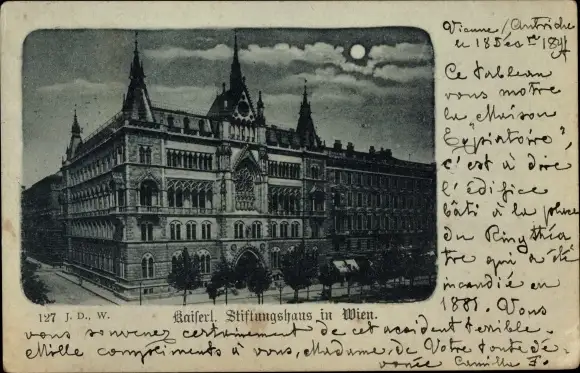 Vienne / Autriche
le 18 Déc
Ce tableau
vous montre
la "Maison
Expiatoire",
c'est à dire
l'Edifice
bâti à la place
du Ringthéa
tre qui a été
incendié en
1881. Vous
127 J. D., W. Kaiserl. Stiftungshaus in Wien.
vous souvenez certainement de cet accident terrible.
Mille compliments à vous, Madame, de Votre toute dé-
vouée Camilla F.